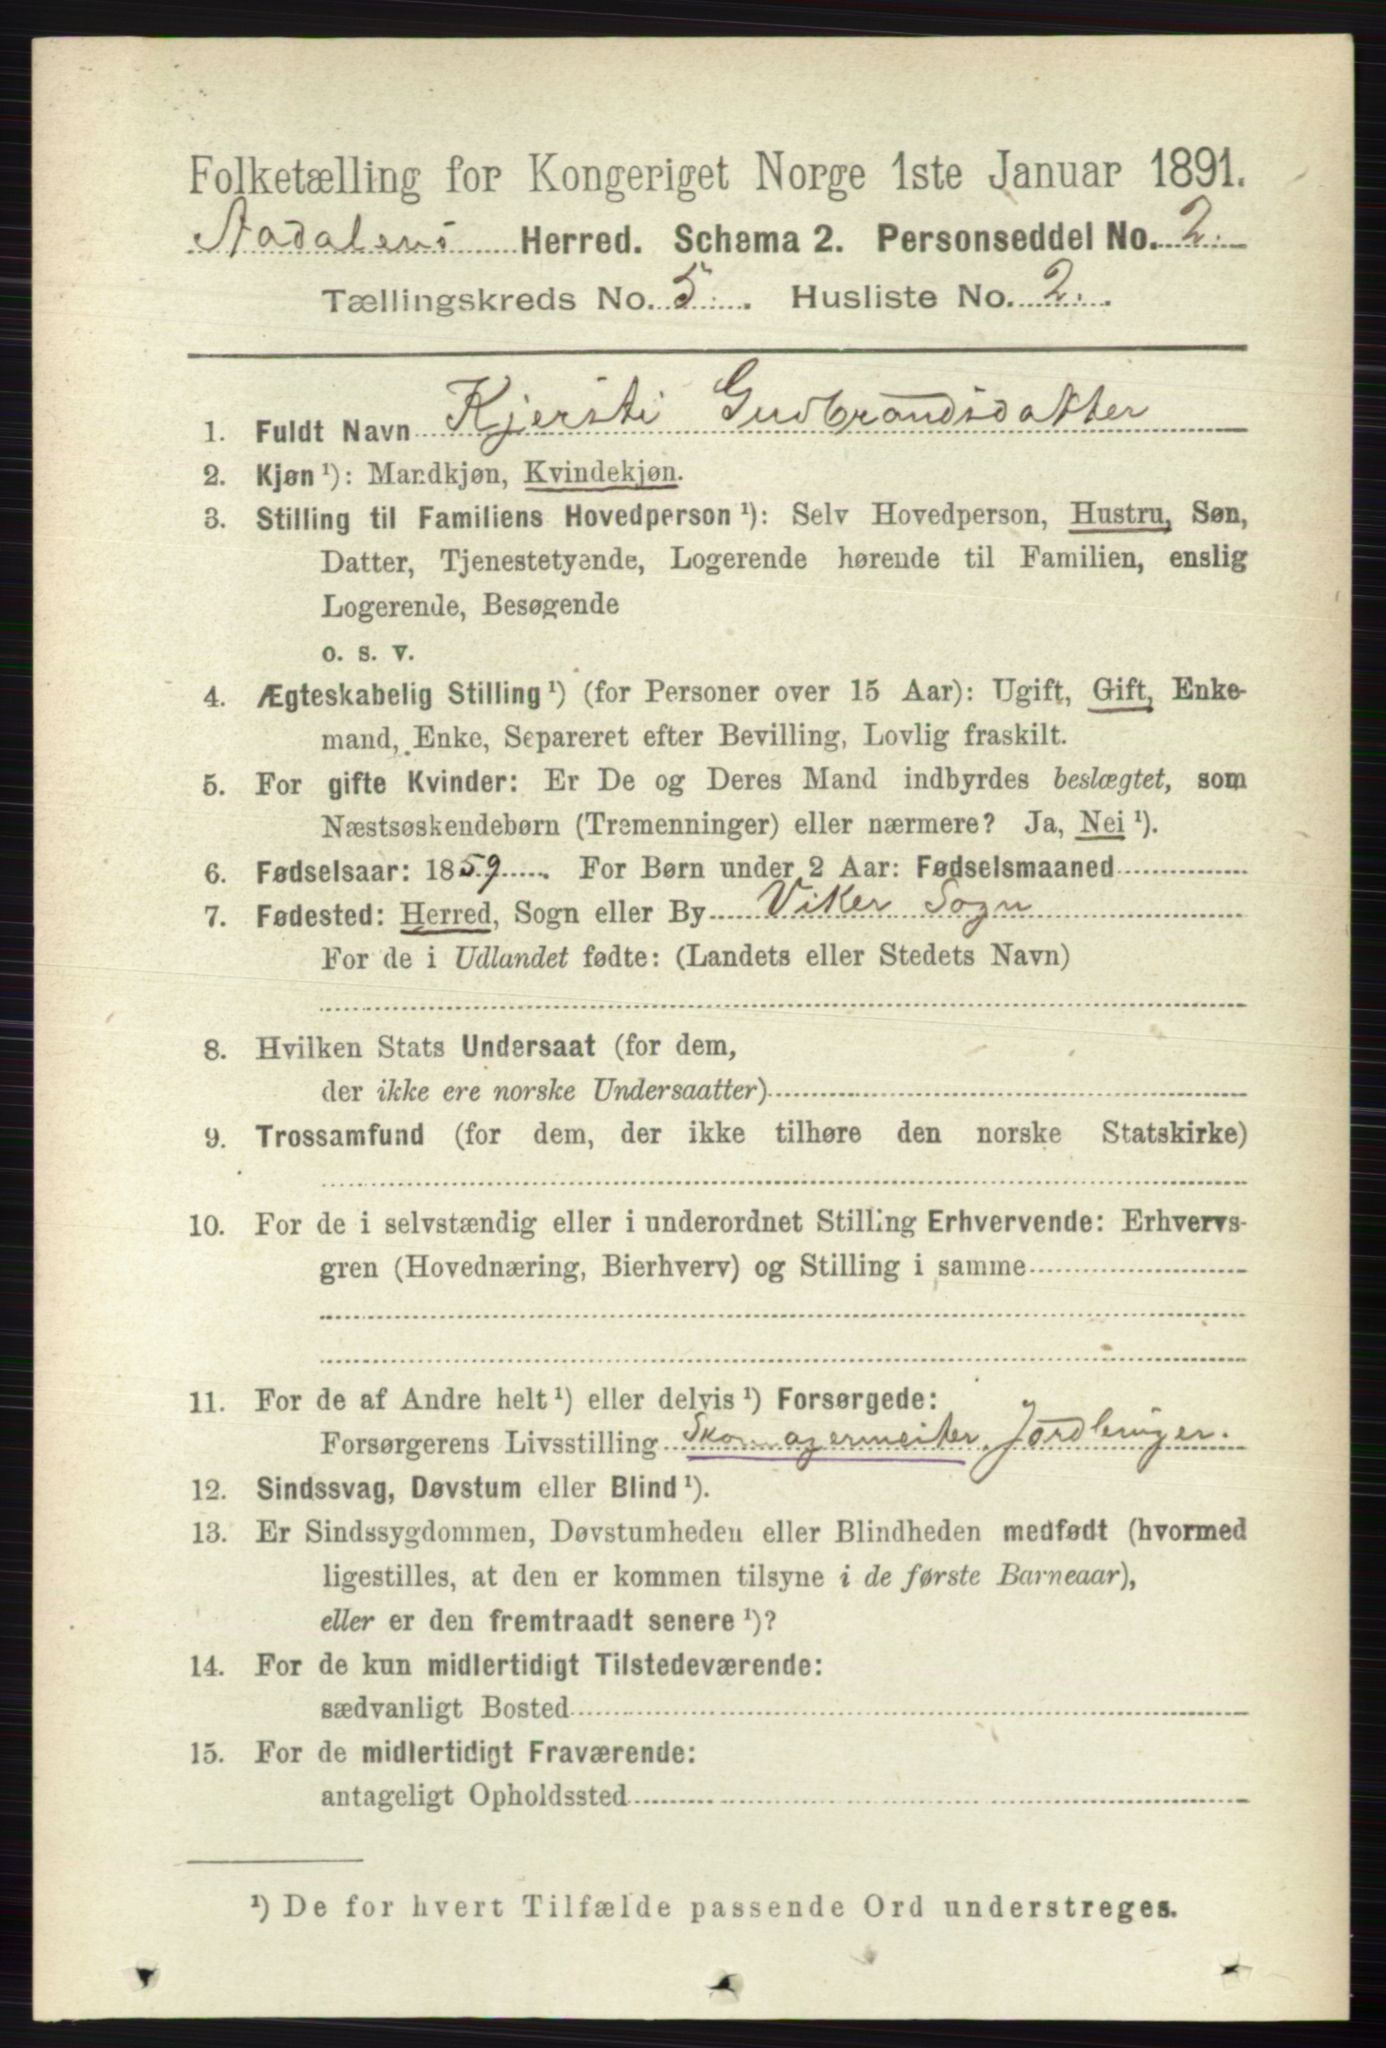 Folketælling for Kongeriget Norge 1ste Januar 1891.
Aadalens Herred. Schema 2. Personseddel No. 2.
Tællingskreds No. 5. Husliste No. 2.
1. Fuldt Navn Kjersti Gudbrandsdatter
2. Kjøn ¹): Mandkjøn, Kvindekjøn.
3. Stilling til Familiens Hovedperson ¹): Selv Hovedperson, Hustru, Søn,
Datter, Tjenestetyende, Logerende hørende til Familien, enslig
Logerende, Besøgende
o. s. v.
4. Ægteskabelig Stilling ¹) (for Personer over 15 Aar): Ugift, Gift, Enke-
mand, Enke, Separeret efter Bevilling, Lovlig fraskilt.
5. For gifte Kvinder: Er De og Deres Mand indbyrdes beslægtet, som
Næstsøskendebørn (Tremenninger) eller nærmere? Ja, Nei ¹).
6. Fødselsaar: 1859. For Børn under 2 Aar: Fødselsmaaned
7. Fødested: Herred, Sogn eller By Viker Sogn
For de i Udlandet fødte: (Landets eller Stedets Navn)
8. Hvilken Stats Undersaat (for dem,
der ikke ere norske Undersaatter)
9. Trossamfund (for dem, der ikke tilhøre den norske Statskirke)
10. For de i selvstændig eller i underordnet Stilling Erhvervende: Erhvervs-
gren (Hovednæring, Bierhverv) og Stilling i samme
11. For de af Andre helt ¹) eller delvis ¹) Forsørgede:
Forsørgerens Livsstilling Skomagermester, Jordbruger.
12. Sindssvag, Døvstum eller Blind ¹).
13. Er Sindssygdommen, Døvstumheden eller Blindheden medfødt (hvormed
ligestilles, at den er kommen tilsyne i de første Barneaar),
eller er den fremtraadt senere ¹)?
14. For de kun midlertidigt Tilstedeværende:
sædvanligt Bosted
15. For de midlertidigt Fraværende:
antageligt Opholdssted
¹) De for hvert Tilfælde passende Ord understreges.